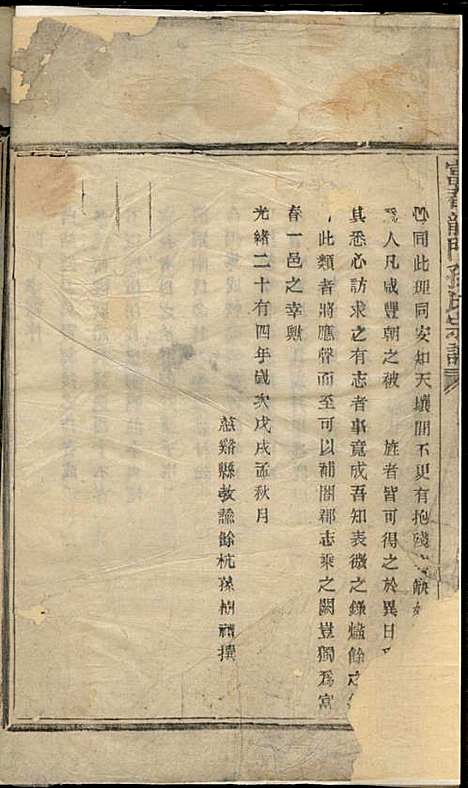 富春龍門孫氏宗譜
同此理同安知天壤間不更有抱殘缺
人凡咸豐朝之被旌者皆可得之於異日
其悉心訪求之有志者事竟成吾知表微之錄爐餘之
此類者將應聲而至可以補闔郡志乘之闕豈獨爲富
春一邑之幸歟
光緒二十有四年歲次戊戌孟秋月
慈谿縣教諭餘杭孫樹禮撰